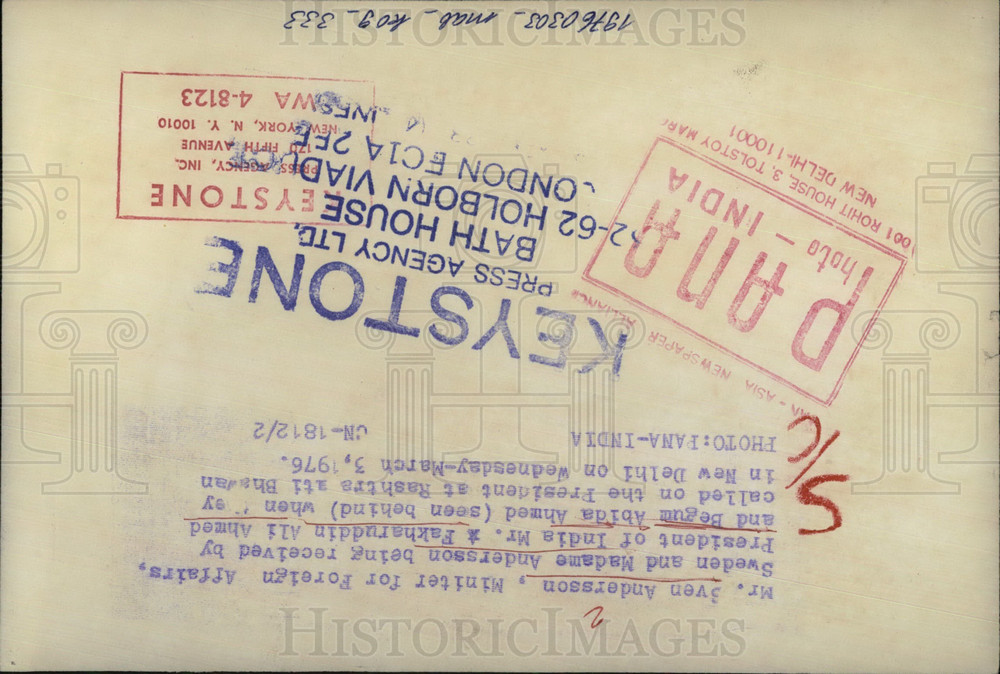 Mr. Sven Andersson, Miniter for Foreign Affairs,
Sweden and Madame Andersson being received by
President of India Mr. * Fakharuddin Ali Ahmed
and Begum Abida Ahmed (seen behind) when
called on the President at Rashtra ati Bhawan
in New Delhi on Wednesday-March 3, 1976.
PHOTO:PANA-INDIA CN-1812/2
2
S/C
KEYSTONE
PRESS AGENCY LTD.
BATH HOUSE
52-62 HOLBORN VIADUCT
LONDON EC1A 2FE
KEYSTONE
PRESS AGENCY, INC.
170 FIFTH AVENUE
NEW YORK, N. Y. 10010
WA 4-8123
PAN-ASIA NEWSPAPER ALLIANCE
PANA
Photo - INDIA
1001 ROHIT HOUSE, 3, TOLSTOY MARG
NEW DELHI-110001
19760303_mab_kog_333
HISTORICIMAGES
HISTORICIMAGES